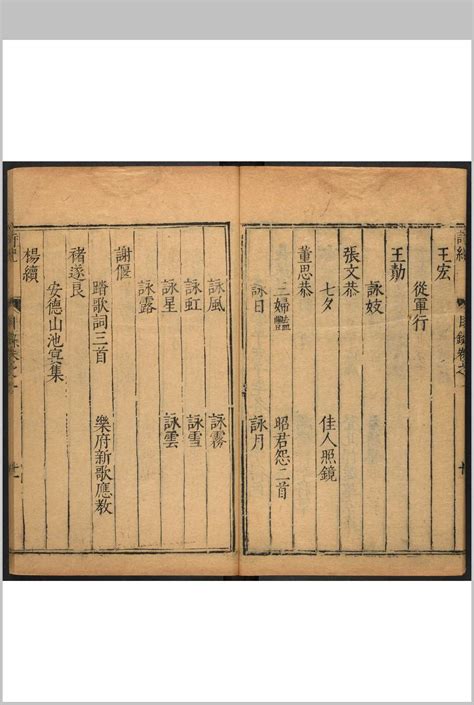 詩紀 目錄卷之 十
王宏
從軍行
王勣
詠妓
張文恭
七夕 佳人照鏡
董思恭
三婦豔 昭君怨二首
詠日 詠月
詠風 詠霧
詠虹 詠雪
詠星 詠雲
詠露
謝偃
踏歌詞三首 樂府新歌應教
褚遂良
安德山池宴集
楊續
目錄卷之 十一